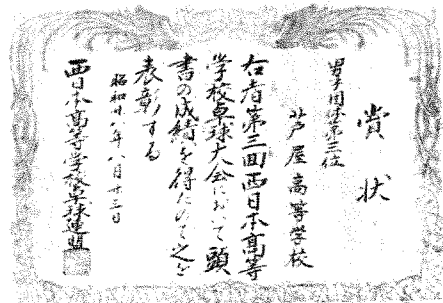 賞状
男子団体第三位
芦屋高等学校
右者第三回西日本高等
学校卓球大会において頭
書の成績を得たので之を
表彰する
昭和廿八年八月廿三日
西日本高等学校卓球連盟